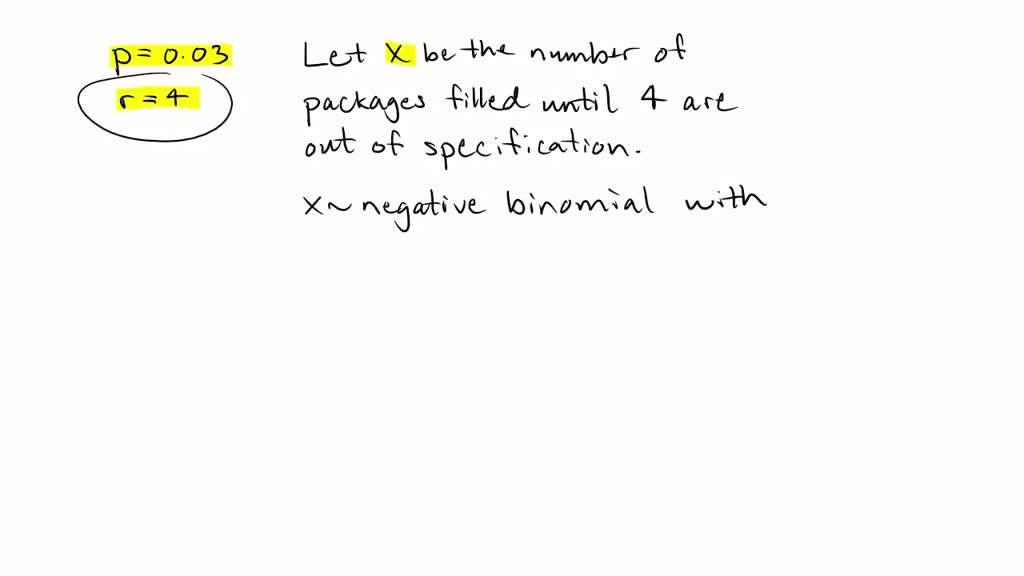 p = 0.03
r = 4
Let X be the number of
packages filled until 4 are
out of specification.
X ~ negative binomial with